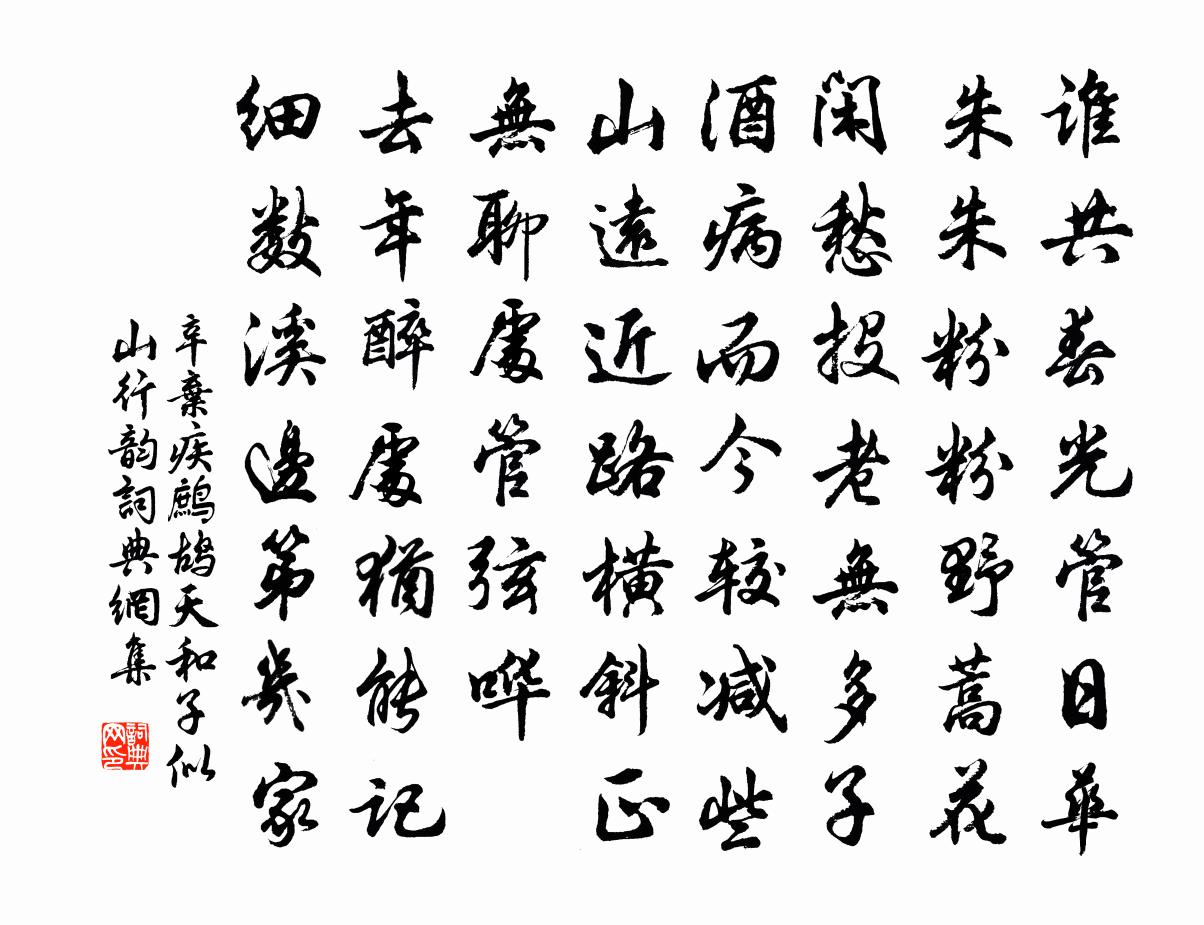 谁共春光管日華
朱朱粉粉野蒿花
闲愁投老無多子
酒病而今较减些
山遠近路橫斜正
無聊處管弦哗
去年醉處猶能记
细數溪邊第幾家
辛棄疾鷓鴣天和子似
山行韵詞典網集
詞典网印